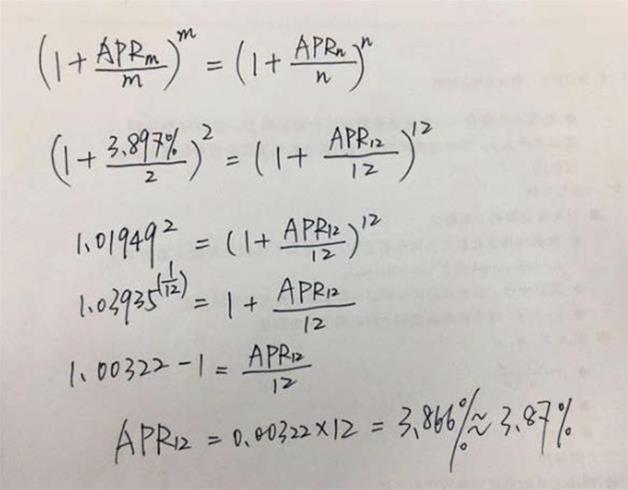 (1 + APRm/m)^m = (1 + APRn/n)^n
(1 + 3.897%/2)^2 = (1 + APR12/12)^12
1.01949^2 = (1 + APR12/12)^12
1.03935^(1/12) = 1 + APR12/12
1.00322 - 1 = APR12/12
APR12 = 0.00322 × 12 = 3.866% ≈ 3.87%